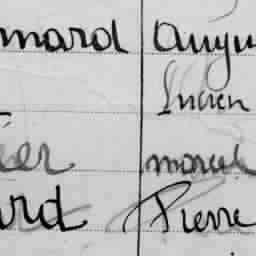 mard Augu
Lucien
ier marcel
ard Pierre